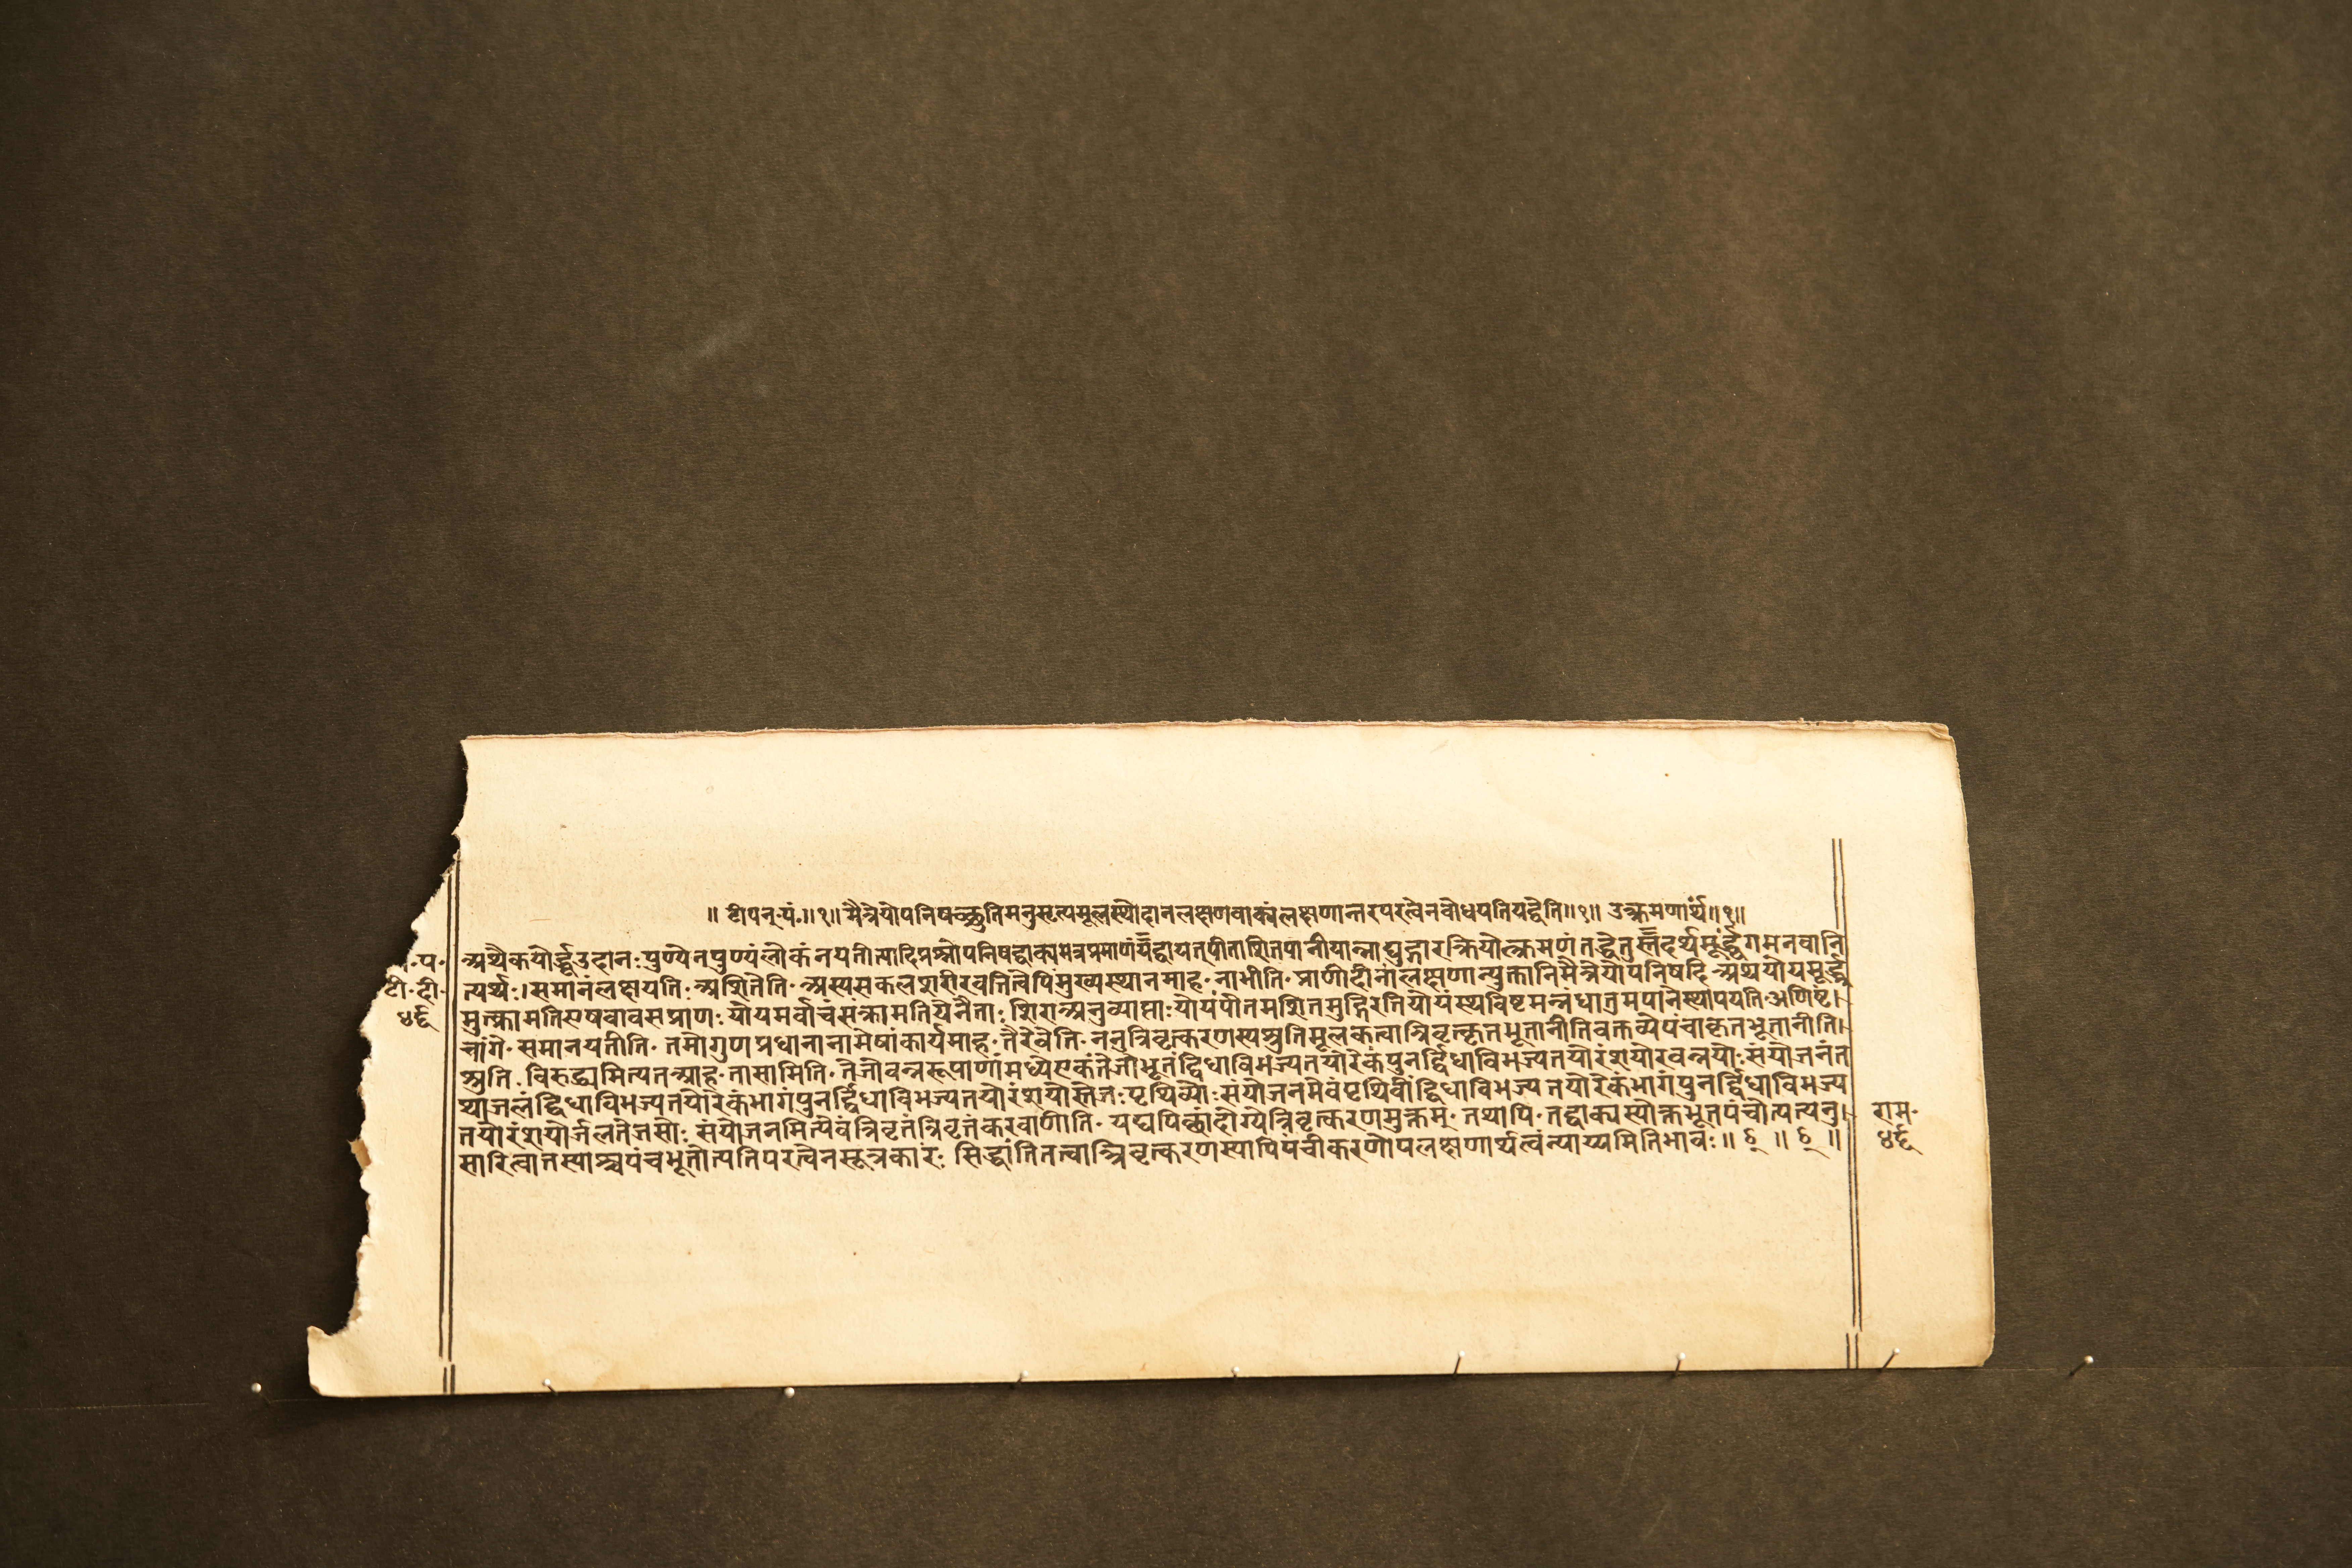 ॥ टीपन्-यं॰॥१॥ मैत्रेयोपनिषच्छ्रुतिमनुसृत्यमूलस्थोदानलक्षणवाक्यंलक्षणान्तरपरत्वेनबोधयतियद्वेति॥१॥ उत्क्रमणार्थं॥१॥
अथैकयोर्द्ध्वउदानःपुण्येनपुण्यंलोकंनयतीत्यादिप्रश्नोपनिषद्वाक्यमत्रप्रमाणंयद्वायत्पीताशितपानीयान्नाद्युद्गारक्रियोत्क्रमणंतद्धेतुस्तदर्थमूर्द्ध्वंगमनवानि
त्यर्थः।।समानंलक्षयति॰अशितेति॰अस्यसकलशरीरवर्त्तित्वेपिमुख्यस्थानमाह॰नाभीति॰प्राणादीनांलक्षणान्युक्तानिमैत्रेयोपनिषदि॰अथयोयमूर्द्ध्व
मुत्क्रामतिएषवावसप्राणःयोयमर्वाचंसंक्रामतियेनैताः शिराअनुव्याप्ताःयोयंपीतमशितमुद्गिरतियोयंस्थविष्टमन्नंधातुमपानेस्थापयति॰अणिष्टं।
चांगे॰समानयतीति॰ तमोगुणप्रधानानामेषांकार्यमाह॰तैरेवेति॰ननुत्रिवृत्करणस्यश्रुतिमूलकत्वात्त्रिवृत्कृतभूतानीतिवक्तव्येपंचीकृतभूतानीति।
श्रुति॰विरुद्धामित्यतआह॰तासामिति॰तेजोवन्नरूपाणांमध्येएकंतेजोभूतंद्विधाविभज्यतयोरेकंपुनर्द्विधाविभज्यतयोरंशयोरवन्नयोःसंयोजनंत
थाजलंद्विधाविभज्यतयोरेकंभागंपुनर्द्विधाविभज्यतयोरंशयोस्तेजःपृथिव्योःसंयोजनमेवंपृथिवींद्विधाविभज्यतयोरेकंभागंपुनर्द्विधाविभज्य
तयोरंशयोर्जलतेजसोः संयोजनमित्येवंत्रिवृतंत्रिवृतंकरवाणीति॰यद्यपिछांदोग्येत्रिवृत्करणमुक्तम्॰तथापि॰तद्वाक्यस्योक्तभूतपंचोत्पत्त्यनु।
सारित्वात्तस्याश्चपंचभूतोत्पत्तिपरत्वेनसूत्रकारः सिद्धांतितत्वात्त्रिवृत्करणस्यापिपंचीकरणोपलक्षणार्थत्वंन्याय्यमितिभावः॥ ६ ॥ ६ ॥
॰प॰
टी॰दी॰
४६
राम॰
४६